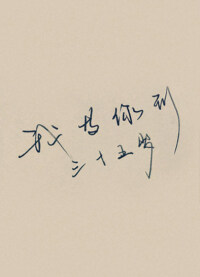 我与你到
三十五岁